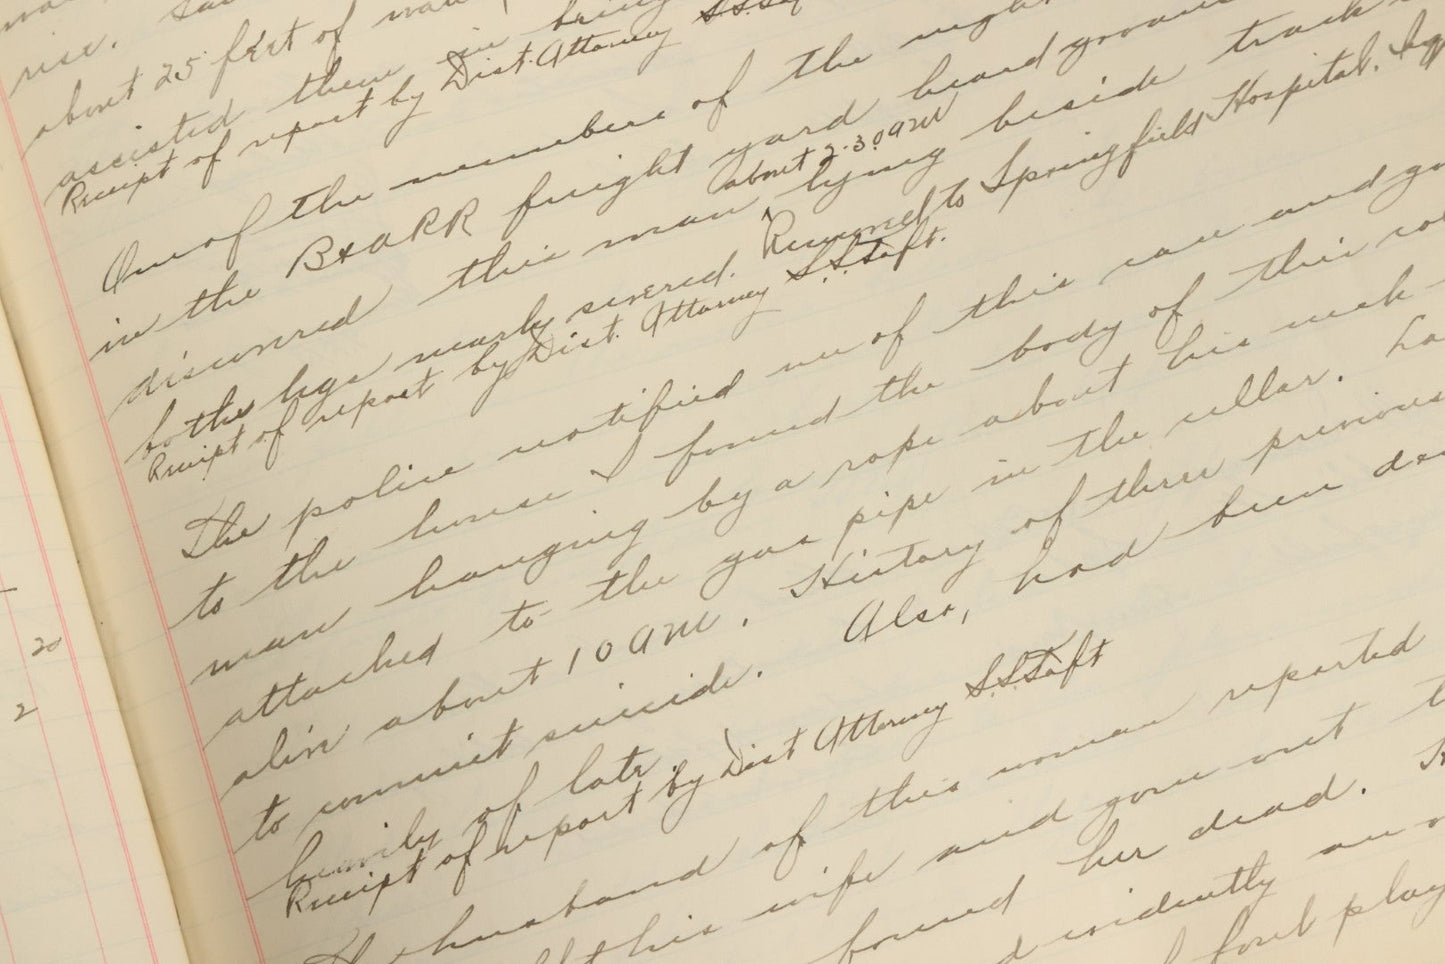 rise.
about 25 feet of
assisted them in bring
Receipt of report by Dist. Attorney S.S. Taft
One of the members of the night
in the B&ARR freight yard heard groans
about 2-30 AM
discovered this man lying beside track
both legs nearly severed. Removed to Springfield Hospital.
Receipt of report by Dist. Attorney S.S. Taft.
The police notified me of this case and
to the house I found the body of this
man hanging by a rope about his neck
attached to the gas pipe in the cellar.
alive about 10 AM. History of three previous
to commit suicide. Also, had been
heavily of late.
Receipt of report by Dist Attorney S.S. Taft
The husband of this woman reported
this wife and gone out
found her dead.
evidently
foul play
20
2